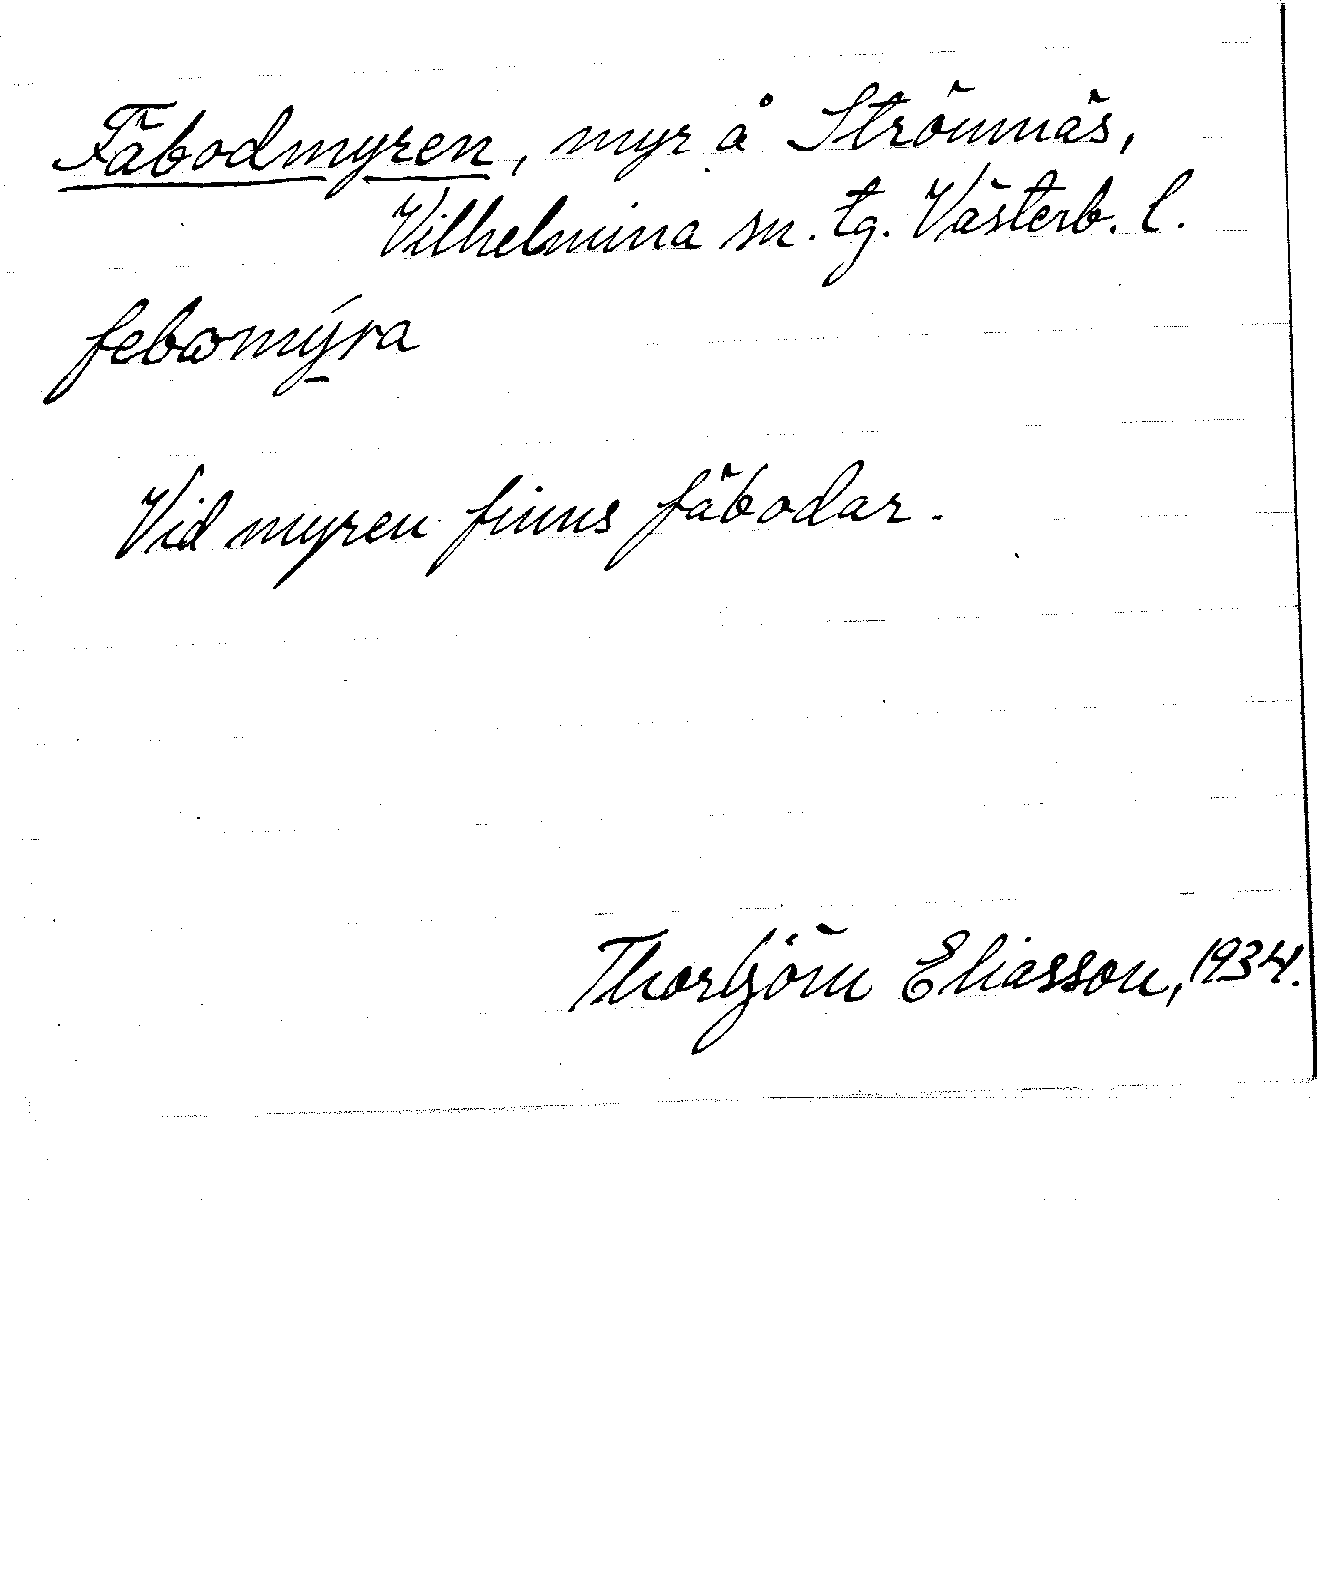 Fäbodmyren, myr å Strömnäs,
Vilhelmina sn. tg. Västerb. l.
febωmý̠ra
Vid myren finns fäbodar.
Thorbjörn Eliasson, 1934.